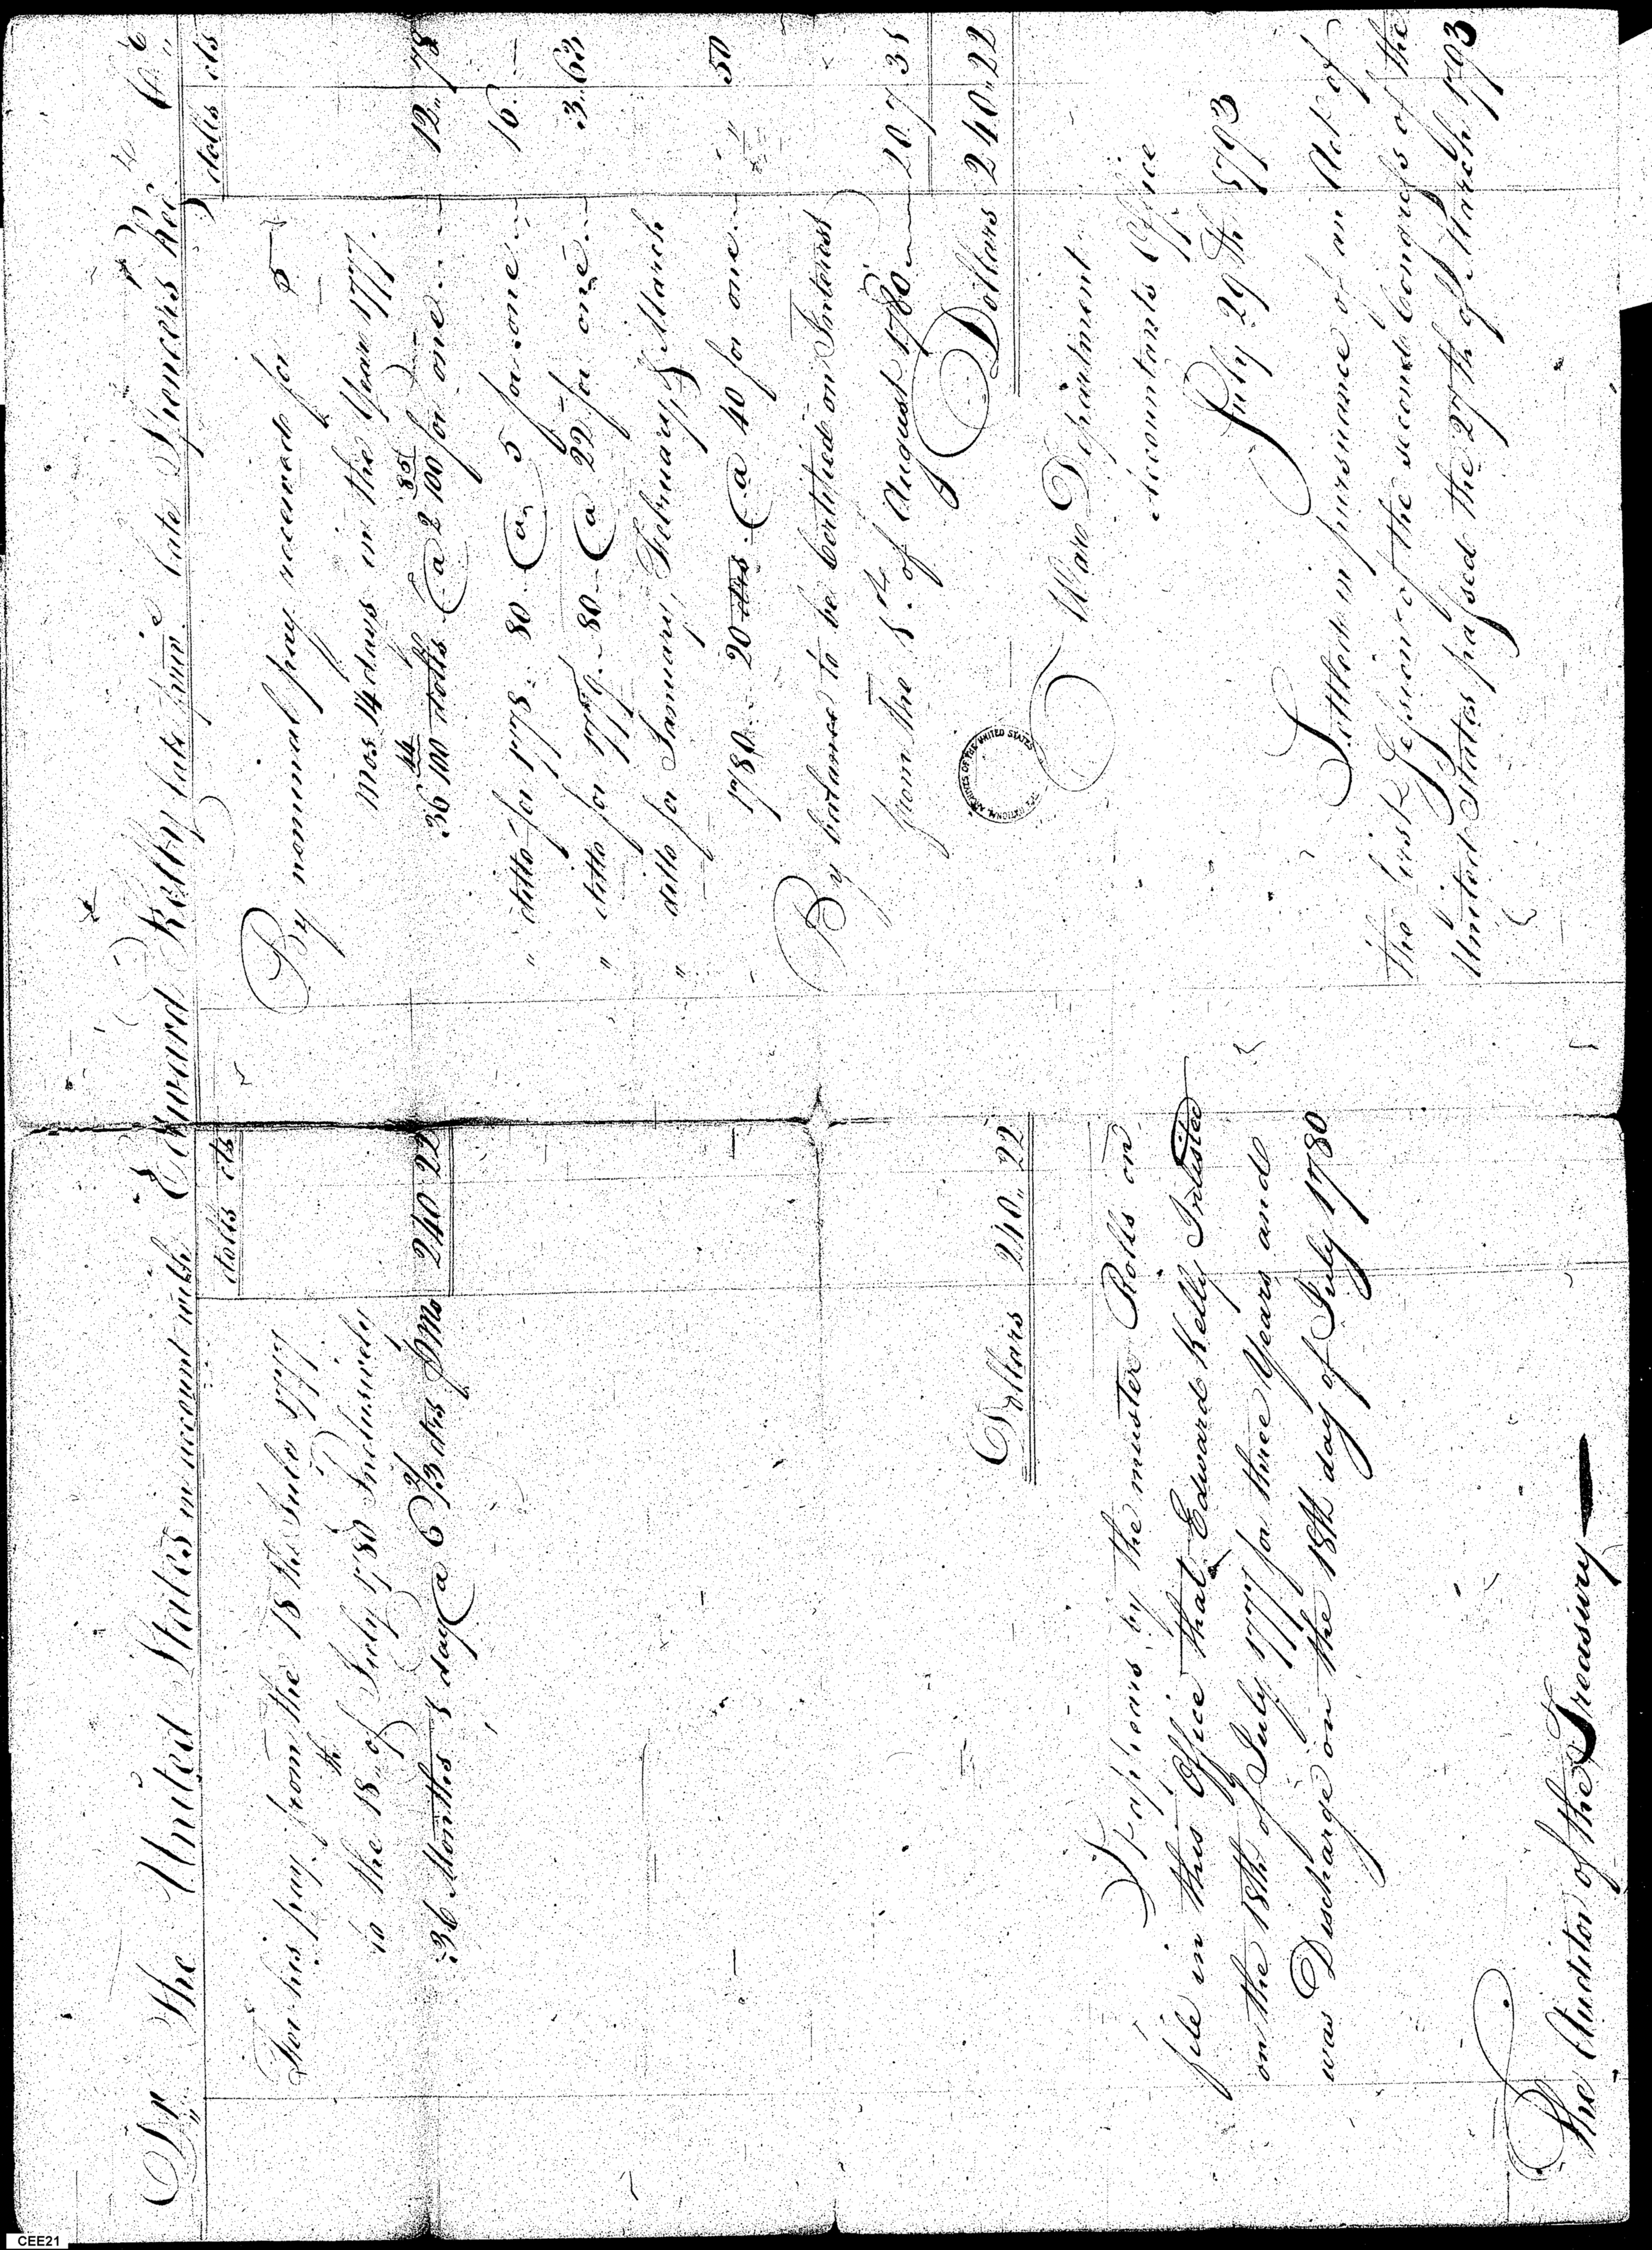 Dr The United States in account with Edward Kelly late private late Spencers Regt Cr
dolls cts
For his pay from the 18th July 1777
to the 18th of July 1780 Inclusively
36 Months 1 day @ 6 2/3 drs pr Mo 240 22
Dollars 240,, 22
It appears by the muster Rolls on
file in this Office that Edward Kelly Inlisted
on the 18th of July 1777 for three Years and
was Discharge on the 18th day of July 1780
The Auditor of the Treasury
dolls cts
By nominal pay received for 5
Mos 14 days in the Year 1777.
36 44/100 dolls @ 2 85/100 for one 12,, 78
" ditto for 1778. 80 @ 5 for one 16. —
" ditto for 1779. 80 @ 22 for one 3.. 63
" ditto for January, February & March
1780 20 drs @ 40 for one " 50
By balance to be Certified on Interest
from the 18th of August 1780 207 31
Dollars 240,, 22
War Department
Accountants Office
July 29th 1793
Settled in pursuance of an Act of
the first Session of the second Congress of the
United States passed the 27th of March 1793
THE NATIONAL ARCHIVES OF THE UNITED STATES
CEE21